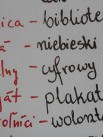 ica - bibliote
- niebieski
lny - cyfrowy
ját - plakat
olníci - wolont